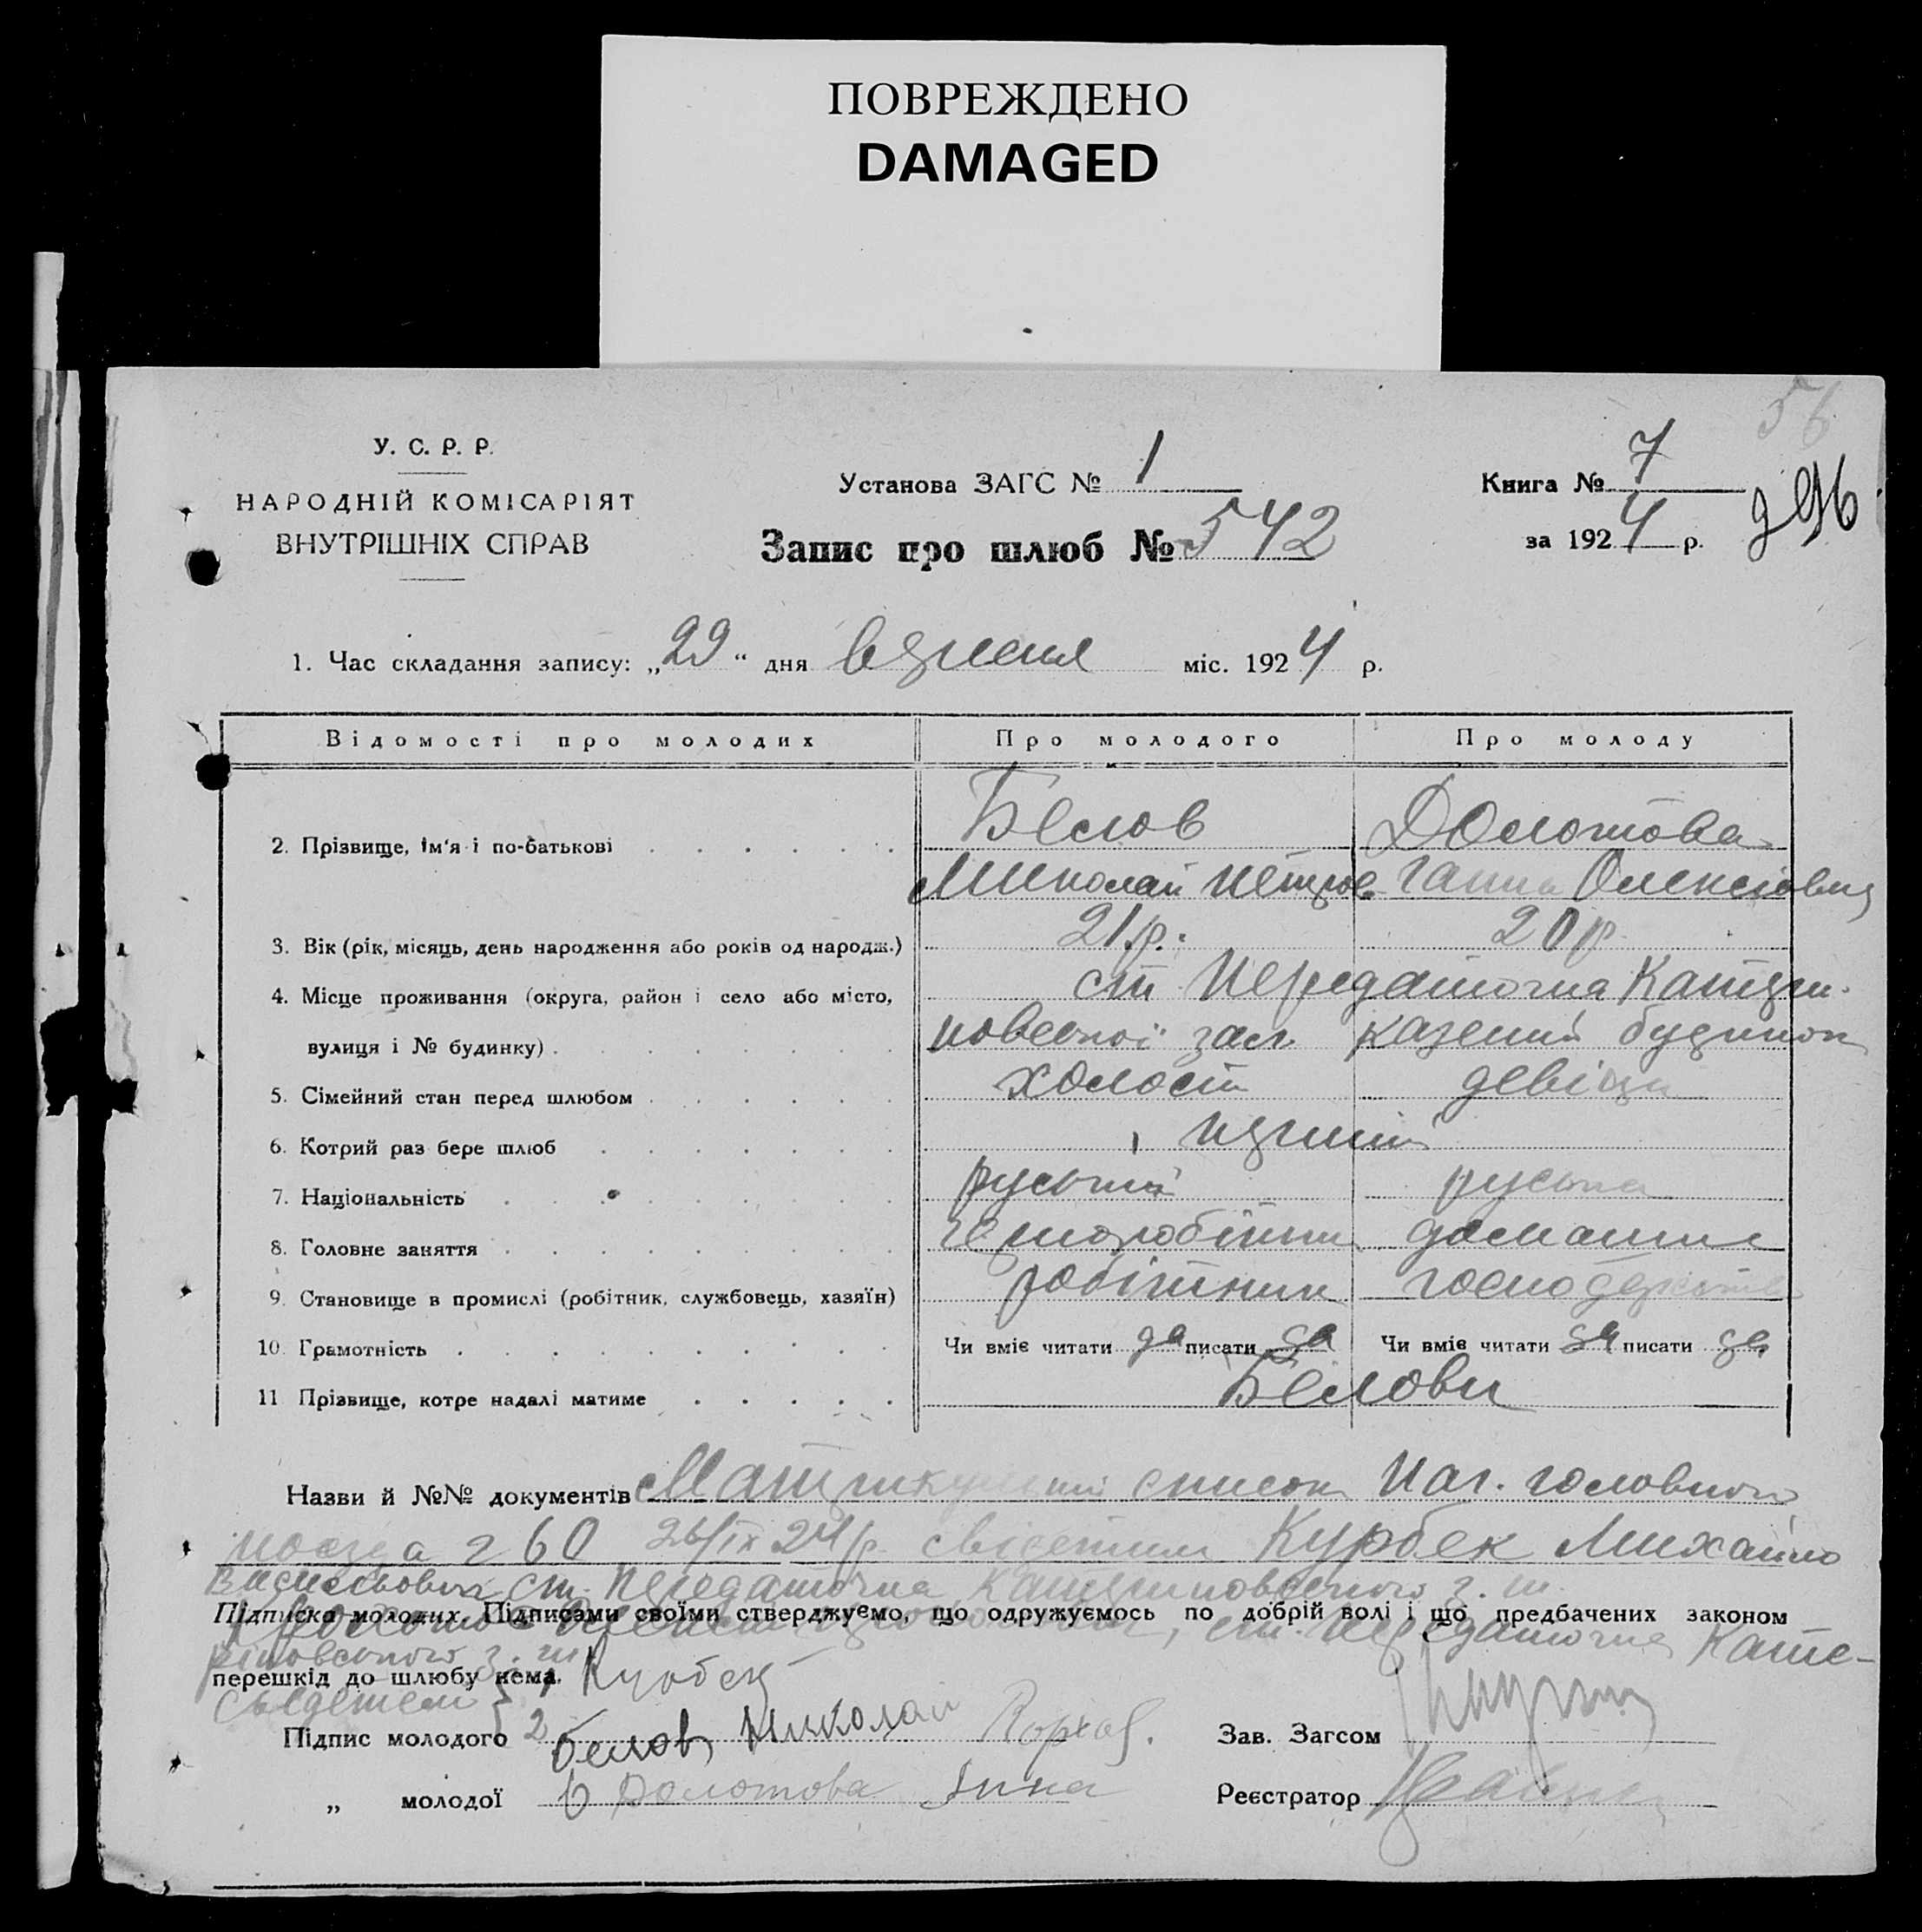 ПОВРЕЖДЕНО
DAMAGED
56
У. С. Р. Р.
НАРОДНІЙ КОМІСАРІЯТ
ВНУТРІШНІХ СПРАВ
Установа ЗАГС № 1
Запис про шлюб № 542
Книга № 7
за 1924 р.
296
1. Час складання запису: „29“ дня вересня міс. 1924 р.
Відомості про молодих Про молодого Про молоду
2. Прізвище, ім'я і по-батькові Белов Долотова
Миколай Петров Ганна Олексіовна
3. Вік (рік, місяць, день народження або років од народж.) 21 р. 20 р.
4. Місце проживання (округа, район і село або місто, ст Передаточна Катери-
вулиця і № будинку) новеської зал. казений будинок
5. Сімейний стан перед шлюбом холост девіця
6. Котрий раз бере шлюб перший
7. Національність руський руська
8. Головне заняття чорноробітник домашнє
9. Становище в промислі (робітник, службовець, хазяїн) робітник господарство
10. Грамотність Чи вміє читати да писати да Чи вміє читати да писати да
11 Прізвище, котре надалі матиме Белови
Назви й №№ документів Матрикульний список Наг. головного
поезда 260 26/IX 24 р. свідетили Курбек Михайло
Васильович ст. Передаточна Катериновеського з. ш.
Підписка молодих. Підписами своїми стверджуємо, що одружуємось по добрій волі і що предбачених законом
ст. Передаточна Кате-
ріновського з. ш.
перешкід до шлюбу нема. 1 Курбек
Сведетели 2
Підпис молодого Белов Николай Зав. Загсом
„ молодої Долотова Анна Реєстратор